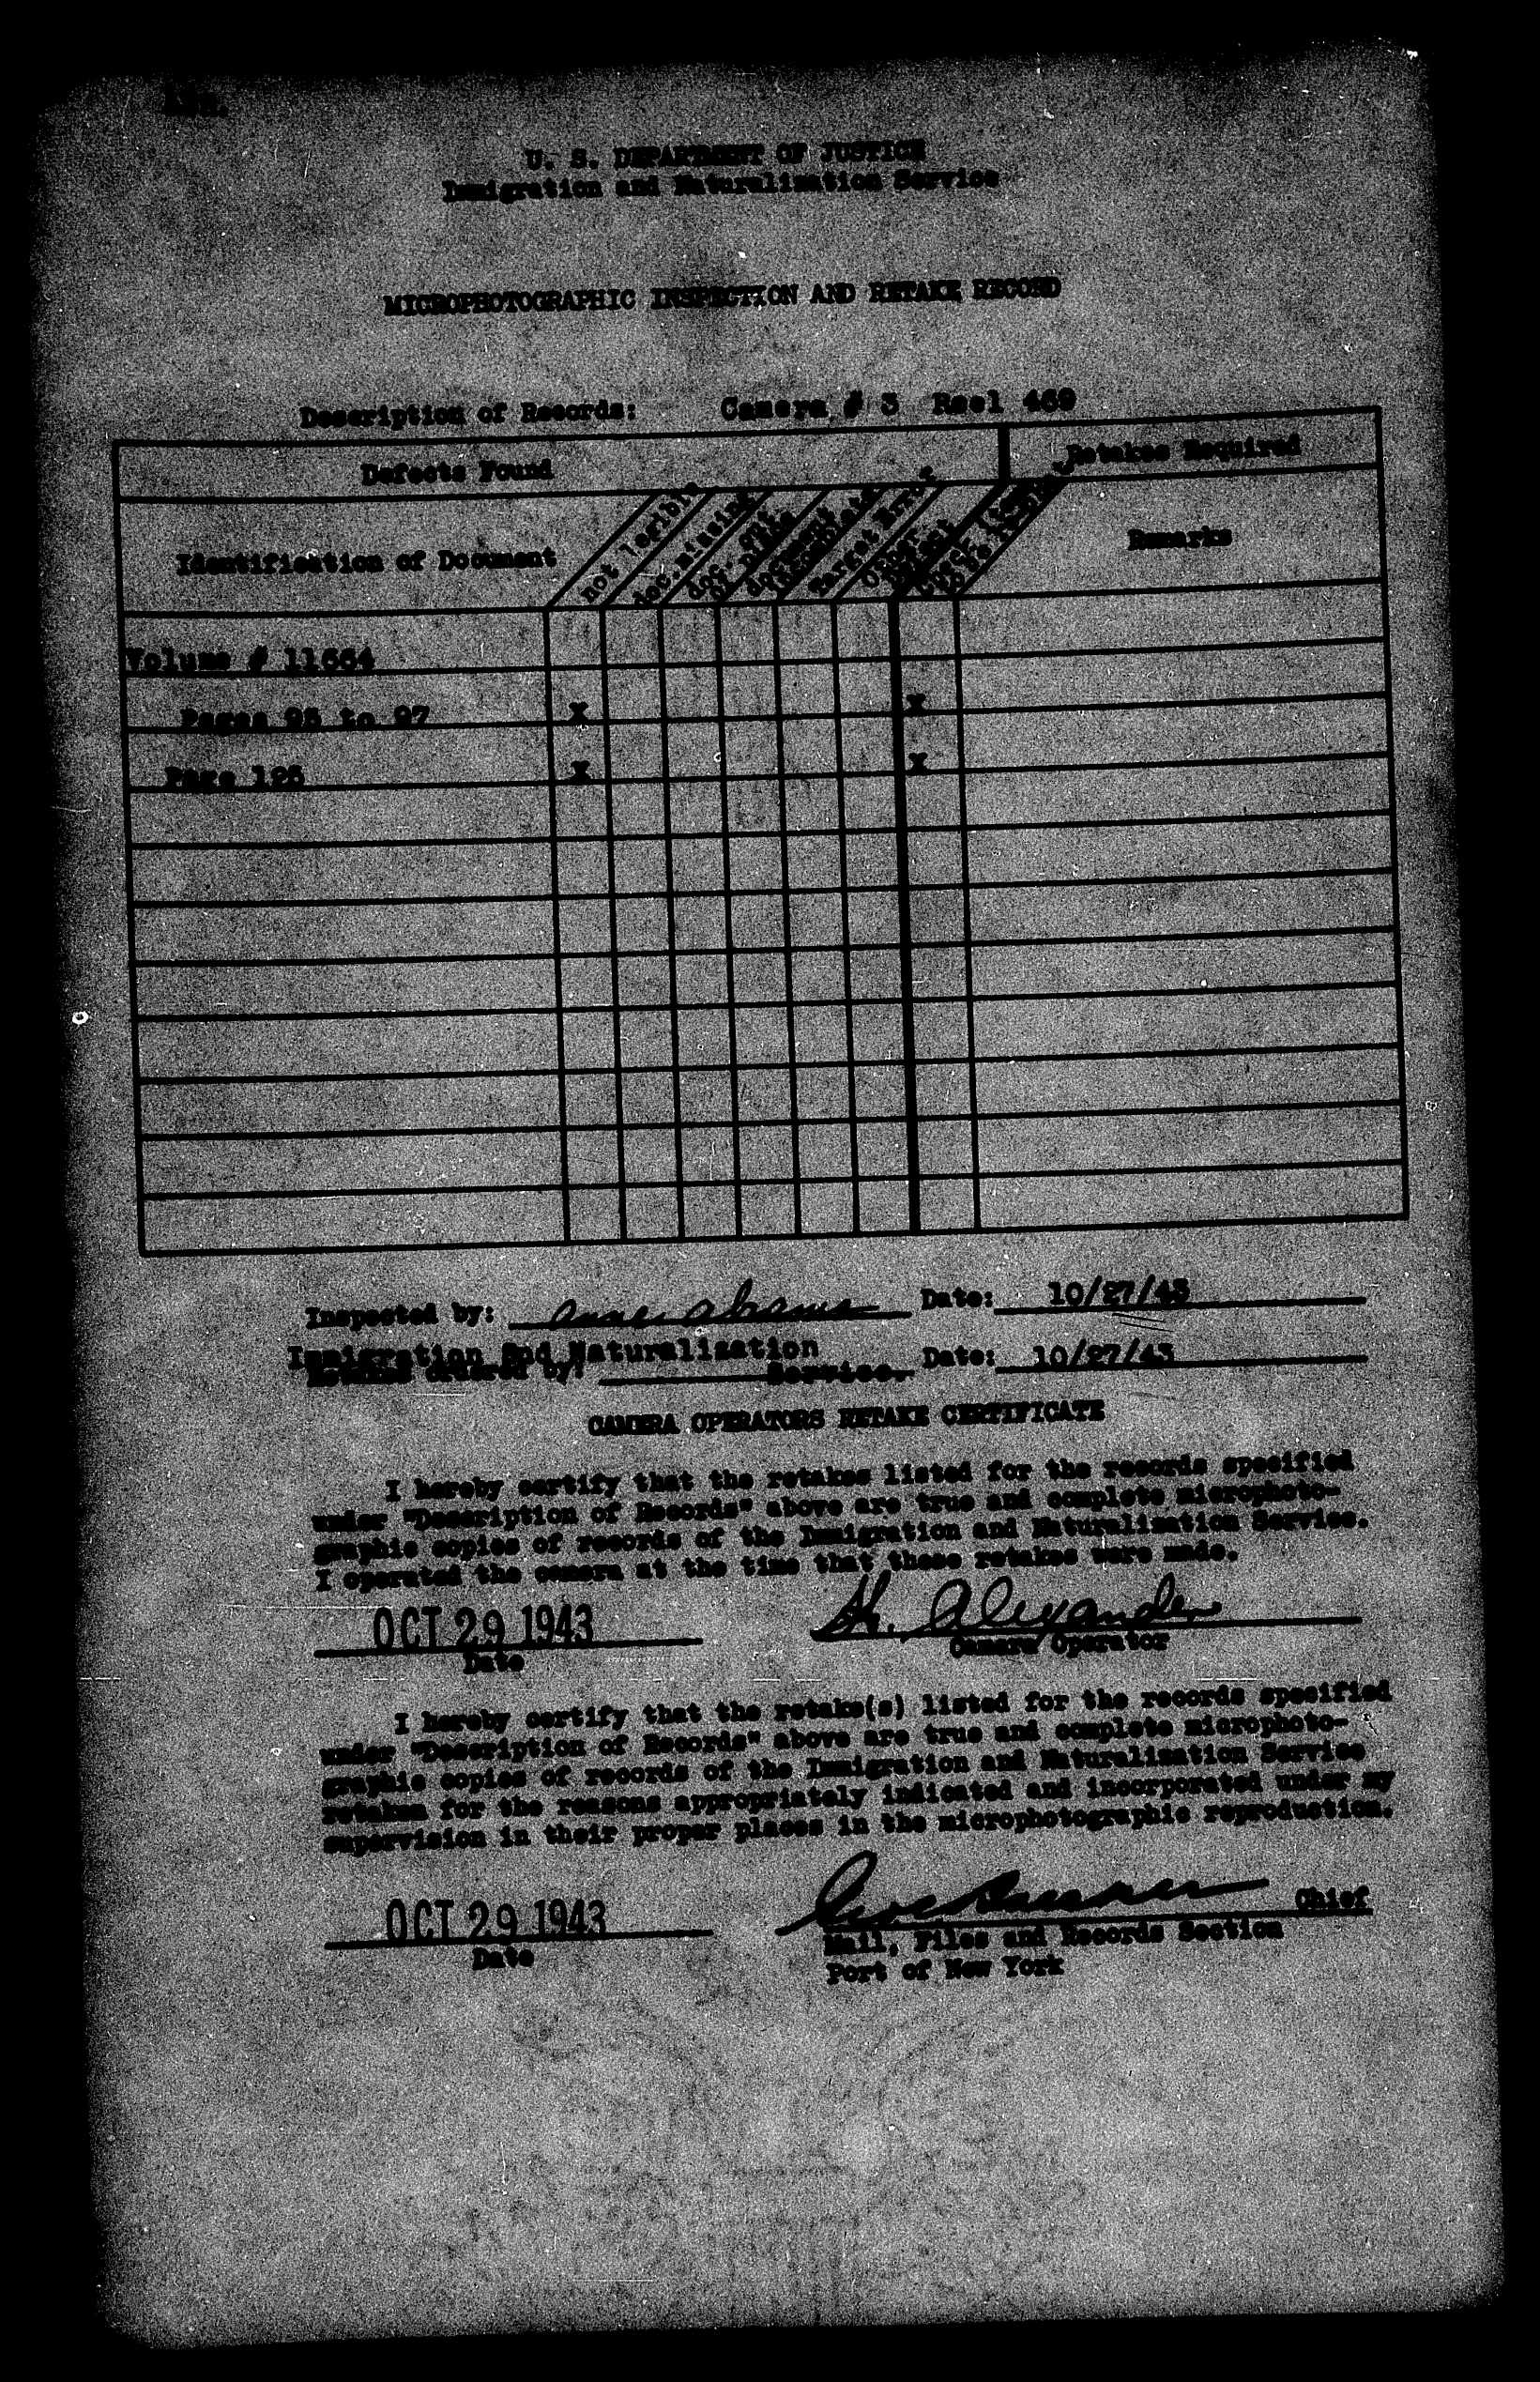 U. S. DEPARTMENT OF JUSTICE
Immigration and Naturalization Service
MICROPHOTOGRAPHIC INSPECTION AND RETAKE RECORD
Description of Records: Camera # 3 Reel 469
Defects Found
Retakes Required
Identification of Document
not legible
doc. missing
Remarks
Volume # 11664
Pages 95 to 97 X X
Page 125 X X
Inspected by: Anne Abrams Date: 10/27/43
Immigration and Naturalization
Retakes ordered by: Service. Date: 10/27/43
CAMERA OPERATORS RETAKE CERTIFICATE
I hereby certify that the retakes listed for the records specified
under "Description of Records" above are true and complete microphoto-
graphic copies of records of the Immigration and Naturalization Service.
I operated the camera at the time that these retakes were made.
OCT 29 1943
Alexander
Date
Camera Operator
I hereby certify that the retake(s) listed for the records specified
under "Description of Records" above are true and complete microphoto-
graphic copies of records of the Immigration and Naturalization Service
retaken for the reasons appropriately indicated and incorporated under my
supervision in their proper places in the microphotographic reproduction.
OCT 29 1943
Chief
Date
Mail, Files and Records Section
Port of New York